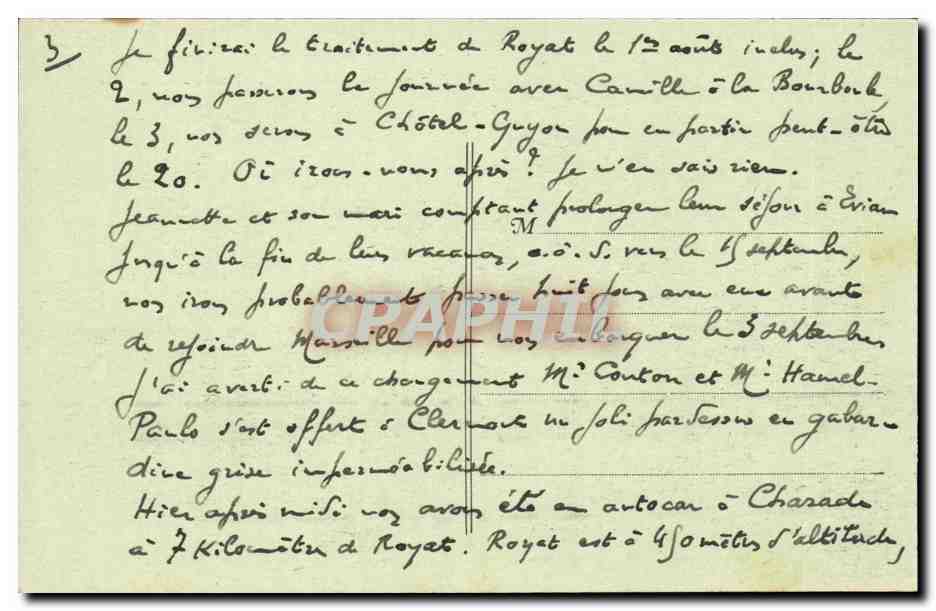 3/ Je finirai le traitement de Royat le 1er août inclus ; le
2, nous passerons la journée avec Camille à la Bourboule,
le 3, nos serons à Châtel-Guyon pour en partir peut-être
le 20. Où irons-nous après ? Je n'en sais rien.
Jeannette et son mari comptant prolonger leur séjour à Evian
M
jusqu'à la fin de leurs vacances, c.à.d. vers le 15 septembre,
nos irons probablement passer huit jours avec eux avant
de rejoindre Marseille pour nos embarquer le 3 septembre
J'ai averti de ce changement Mr Couton et Mr Hamel-
Paulo s'est offert à Clermont un joli pardessus en gabar-
dine grise imperméabilisée.
Hier après midi nos avons été en autocar à Charade
à 7 Kilomètres de Royat. Royat est à 450 mètres d'altitude,
CPAPHIL